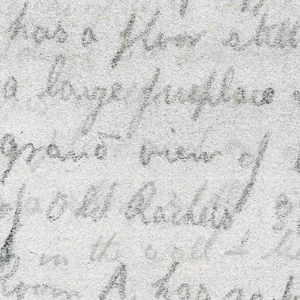 has a floor
a large fireplace
grand view of
of Old Rachels
in the wall -
room A has